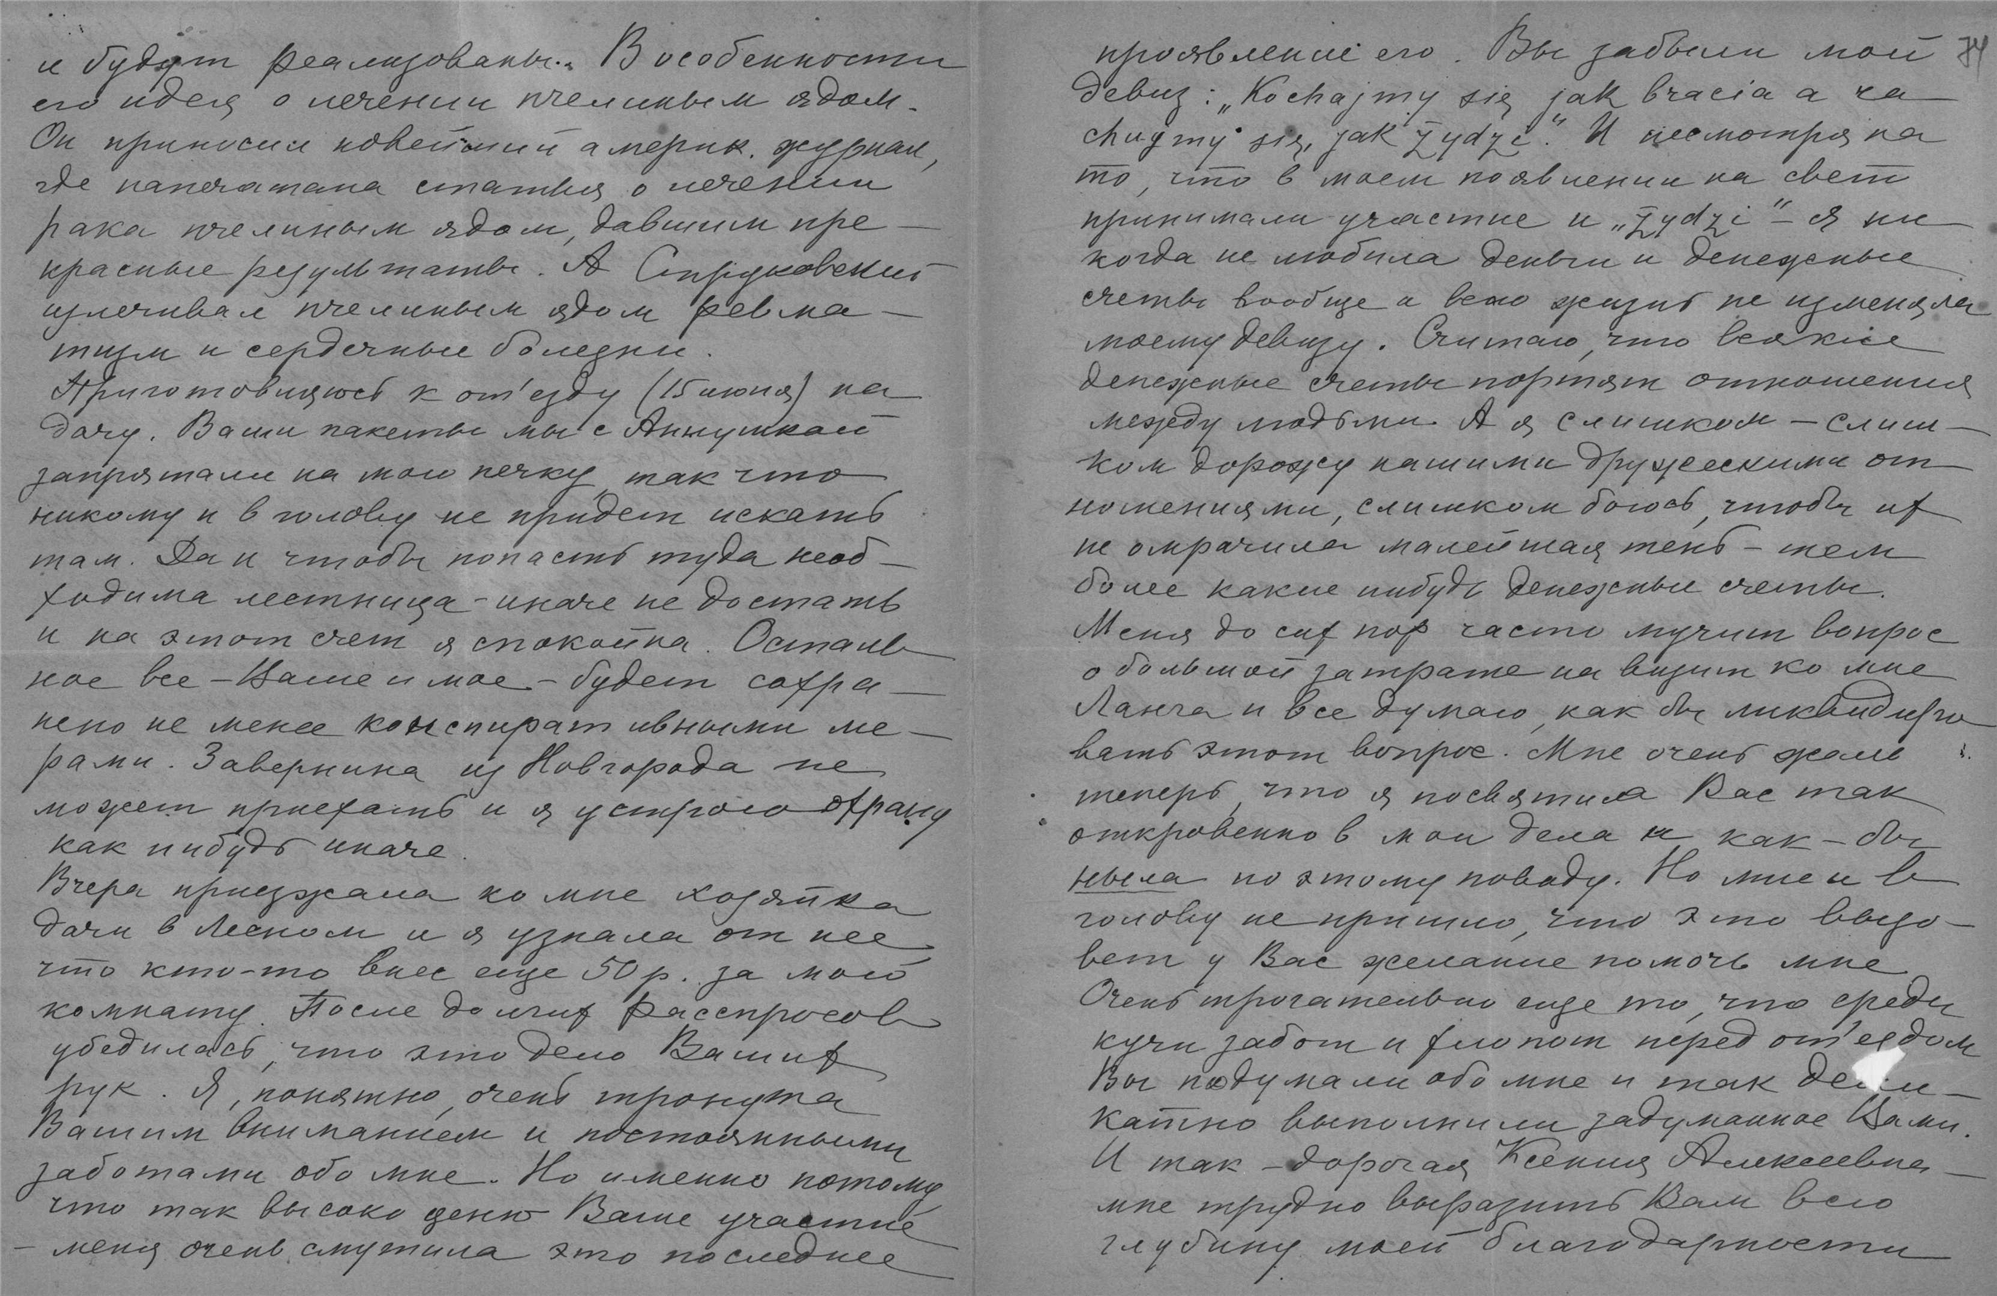 и будут реализованы. В особенности
его идея о лечении пчелиным ядом.
Он приносил новейший америк. журнал,
где напечатана статья о лечении
рака пчелиным ядом, давшим пре-
красные результаты. А Струковский
излечивал пчелиным ядом ревма-
тизм и сердечные болезни.
Приготовляюсь к от'езду (15 июня) на
дачу. Ваши пакеты мы с Аннушкой
запрятали на мою печку, так что
никому и в голову не придет искать
там. Да и чтобы попасть туда необ-
ходима лестница - иначе не достать
и на этот счет я спокойна. Осталь
ное все - Ваше и мое - будет сохра-
нено не менее конспиративными ме-
рами. Завернина из Новгорода не
может приехать и я устрою охрану
как нибудь иначе.
Вчера приезжала ко мне хозяйка
дачи в Лесном и я узнала от нее,
что кто-то внес еще 50 р. за мою
комнату. После долгих расспросов
убедилась, что это дело Ваших
рук. Я, понятно, очень тронута
Вашим вниманием и постоянными
заботами обо мне. Но именно потому,
что так высоко ценю Ваше участие
- меня очень смутила это последнее
проявление его. Вы забыли мой 74
девиз: „Kochajmy się jak bracia a ra
chujmy się, jak żydzi". И несмотря на
то, что в моем появлении на свет
принимали участие и „żydzi" - я ни
когда не любила деньги и денежные
счеты вообще и всю жизнь не изменяла
моему девизу. Считаю, что всякие
денежные счеты портят отношения
между людьми. А я слишком - слиш-
ком дорожу нашими дружескими от
ношениями, слишком боюсь, чтобы их
не омрачила малейшая тень - тем
более какие нибудь денежные счеты.
Меня до сих пор часто мучит вопрос
о большой затрате на визит ко мне
Ланга и все думаю, как бы ликвидиро
вать этот вопрос. Мне очень жаль
теперь, что я посвятила Вас так
откровенно в мои дела и как-бы
ныла по этому поводу. Но мне и в
голову не пришло, что это вызо-
вет у Вас желание помочь мне.
Очень трогательно еще то, что среди
кучи забот и хлопот перед от'ездом
Вы подумали обо мне и так дели-
катно выполнили задуманное Вами.
И так - дорогая Ксения Алексеевна -
мне трудно выразить Вам всю
глубину моей благодарности